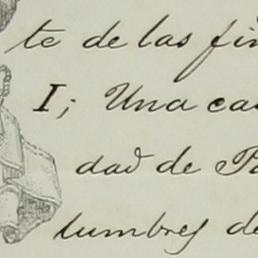 te de las fin
I; Una cas
dad de Pa
tumbres de